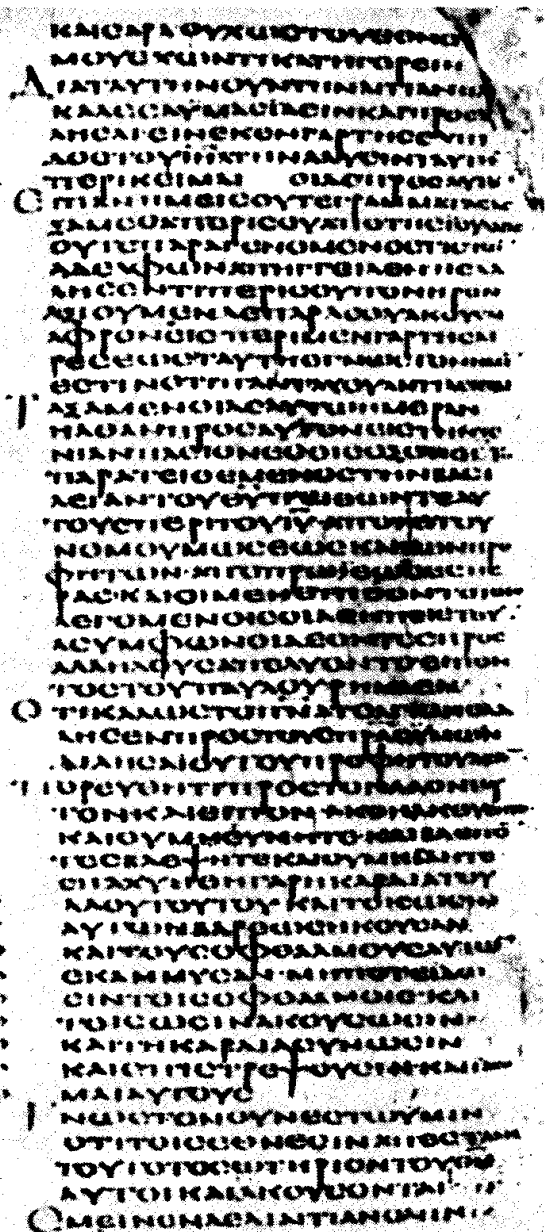 ΚΑΙCΑΡΑΟΥΧΩCΤΟΥΕΘΝΟ
ΜΟΥΕΧΩΝΤΙΚΑΤΗΓΟΡΕΙΝ
ΔΙΑΤΑΥΤΗΝΟΥΝΤΗΝΑΙΤΙΑΝΠΑ
ΚΑΛΕCΑΥΜΑCΙΔΕΙΝΚΑΙΠΡΟCΛΑ
ΛΗCΑΙΕΙΝΕΚΕΝΓΑΡΤΗCΕΛΠΙ
ΔΟCΤΟΥΙΗΛΤΗΝΑΛΥCΙΝΤΑΥΤΗ
ΠΕΡΙΚΕΙΜΑΙ ΟΙΔΕΠΡΟCΑΥΤΟ
ΕΙΠΑΝΗΜΕΙCΟΥΤΕΓΡΑΜΜΑΤΑΕΔΕ
ΞΑΜΕΘΑΠΕΡΙCΟΥΑΠΟΤΗCΙΟΥΔΑΙΑC
ΟΥΤΕΠΑΡΑΓΕΝΟΜΕΝΟCΤΙCΤΩ
ΑΔΕΛΦΩΝΑΠΗΓΓΕΙΛΕΝΗΕΛΑ
ΛΗCΕΝΤΙΠΕΡΙCΟΥΠΟΝΗΡΟΝ
ΑΞΙΟΥΜΕΝΔΕΠΑΡΑCΟΥΑΚΟΥCΑΙ
ΑΦΡΟΝΕΙCΠΕΡΙΜΕΝΓΑΡΤΗCΑΙ
ΡΕCΕΩCΤΑΥΤΗCΓΝΩCΤΟΝΗΜΙ
ΕCΤΙΝΟΤΙΠΑΝΤΑΧΟΥΑΝΤΙΛΕΓΕΤΑΙ
ΤΑΞΑΜΕΝΟΙΔΕΑΥΤΩΗΜΕΡΑΝ
ΗΛΘΑΝΠΡΟCΑΥΤΟΝΕΙCΤΗΝΞΕ
ΝΙΑΝΠΛΕΙΟΝΕCΟΙCΕΞΕΤΙΘΕΤΟ
ΠΑΡΑΤΕΙΘΕΜΕΝΟCΤΗΝΒΑCΙ
ΛΕΙΑΝΤΟΥΘΥΠΕΙΘΩΝΤΕΑΥ
ΤΟΥCΠΕΡΙΤΟΥΙΥΑΠΟΤΕΤΟΥ
ΝΟΜΟΥΜΩCΕΩCΚΑΙΤΩΝΠΡΟ
ΦΗΤΩΝ·ΑΠΟΠΡΩΙΕΩCΕCΠΕ
ΡΑCΚΑΙΟΙΜΕΝΕΠΙΘΟΝΤΟΤΟΙC
ΛΕΓΟΜΕΝΟΙCΟΙΔΕΗΠΙCΤΟΥ
ΑCΥΜΦΩΝΟΙΔΕΟΝΤΕCΠΡΟC
ΑΛΛΗΛΟΥCΑΠΕΛΥΟΝΤΟΕΙΠΟΝ
ΤΟCΤΟΥΠΑΥΛΟΥΡΗΜΑΕΝ
ΟΤΙΚΑΛΩCΤΟΠΝΑΤΟΑΓΙΟΝΕΛΑ
ΛΗCΕΝΠΡΟCΤΟΥCΠΡΑCΥΜΩΝ
ΔΙΑΗCΑΙΟΥΤΟΥΠΡΟΦΗΤΟΥΛΕΓΩ
ΠΟΡΕΥΘΗΤΙΠΡΟCΤΟΝΛΑΟΝΤΟΥ
ΤΟΝΚΑΙΕΙΠΟΝΑΚΟΗΑΚΟΥCΕΤΕ
ΚΑΙΟΥΜΗCΥΝΗΤΕΚΑΙΒΛΕΠΟ
ΤΕCΒΛΕΨΗΤΕΚΑΙΟΥΜΗΙΔΗΤΕ
ΕΠΑΧΥΝΘΗΓΑΡΗΚΑΡΔΙΑΤΟΥ
ΛΑΟΥΤΟΥΤΟΥΚΑΙΤΟΙCΩCΙΝ
ΑΥΤΩΝΒΑΡΕΩCΗΚΟΥCΑΝ
ΚΑΙΤΟΥCΟΦΘΑΛΜΟΥCΑΥΤΩ
ΕΚΑΜΜΥCΑΝ·ΜΗΠΟΤΕΙΔΩ
CΙΝΤΟΙCΟΦΘΑΛΜΟΙCΚΑΙ
ΤΟΙCΩCΙΝΑΚΟΥCΩCΙΝ
ΚΑΙΤΗΚΑΡΔΙΑCΥΝΩCΙΝ
ΚΑΙΕΠΙCΤΡΕΨΟΥCΙΝΚΑΙΙΑCΟ
ΜΑΙΑΥΤΟΥC
ΓΝΩCΤΟΝΟΥΝΕCΤΩΥΜΙΝ
ΟΤΙΤΟΙCΕΘΝΕCΙΝΑΠΕCΤΑΛΗ
ΤΟΥΤΟΤΟCΩΤΗΡΙΟΝΤΟΥΘΥ
ΑΥΤΟΙΚΑΙΑΚΟΥCΟΝΤΑΙ
ΕΜΕΙΝΕΝΔΕΔΙΕΤΙΑΝΟΛΗΝ